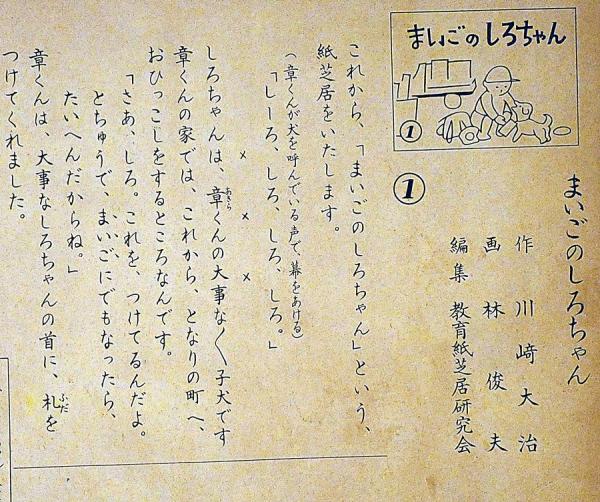 まいごのしろちゃん
①
まいごのしろちゃん
作 川﨑大治
画 林俊夫
編集 教育紙芝居研究会
①
これから、「まいごのしろちゃん」という、
紙芝居をいたします。
(章くんが犬を呼んでいる声で、幕をあける)
「しーろ、しろ、しろ、しろ。」
× × × ×
しろちゃんは、章くんの大事な〱子犬です
あきら
章くんの家では、これから、となりの町へ、
おひっこしをするところなんです。
「さあ、しろ。これを、つけてるんだよ。
とちゅうで、まいごにでもなったら、
たいへんだからね。」
章くんは、大事なしろちゃんの首に、札を
ふだ
つけてくれました。